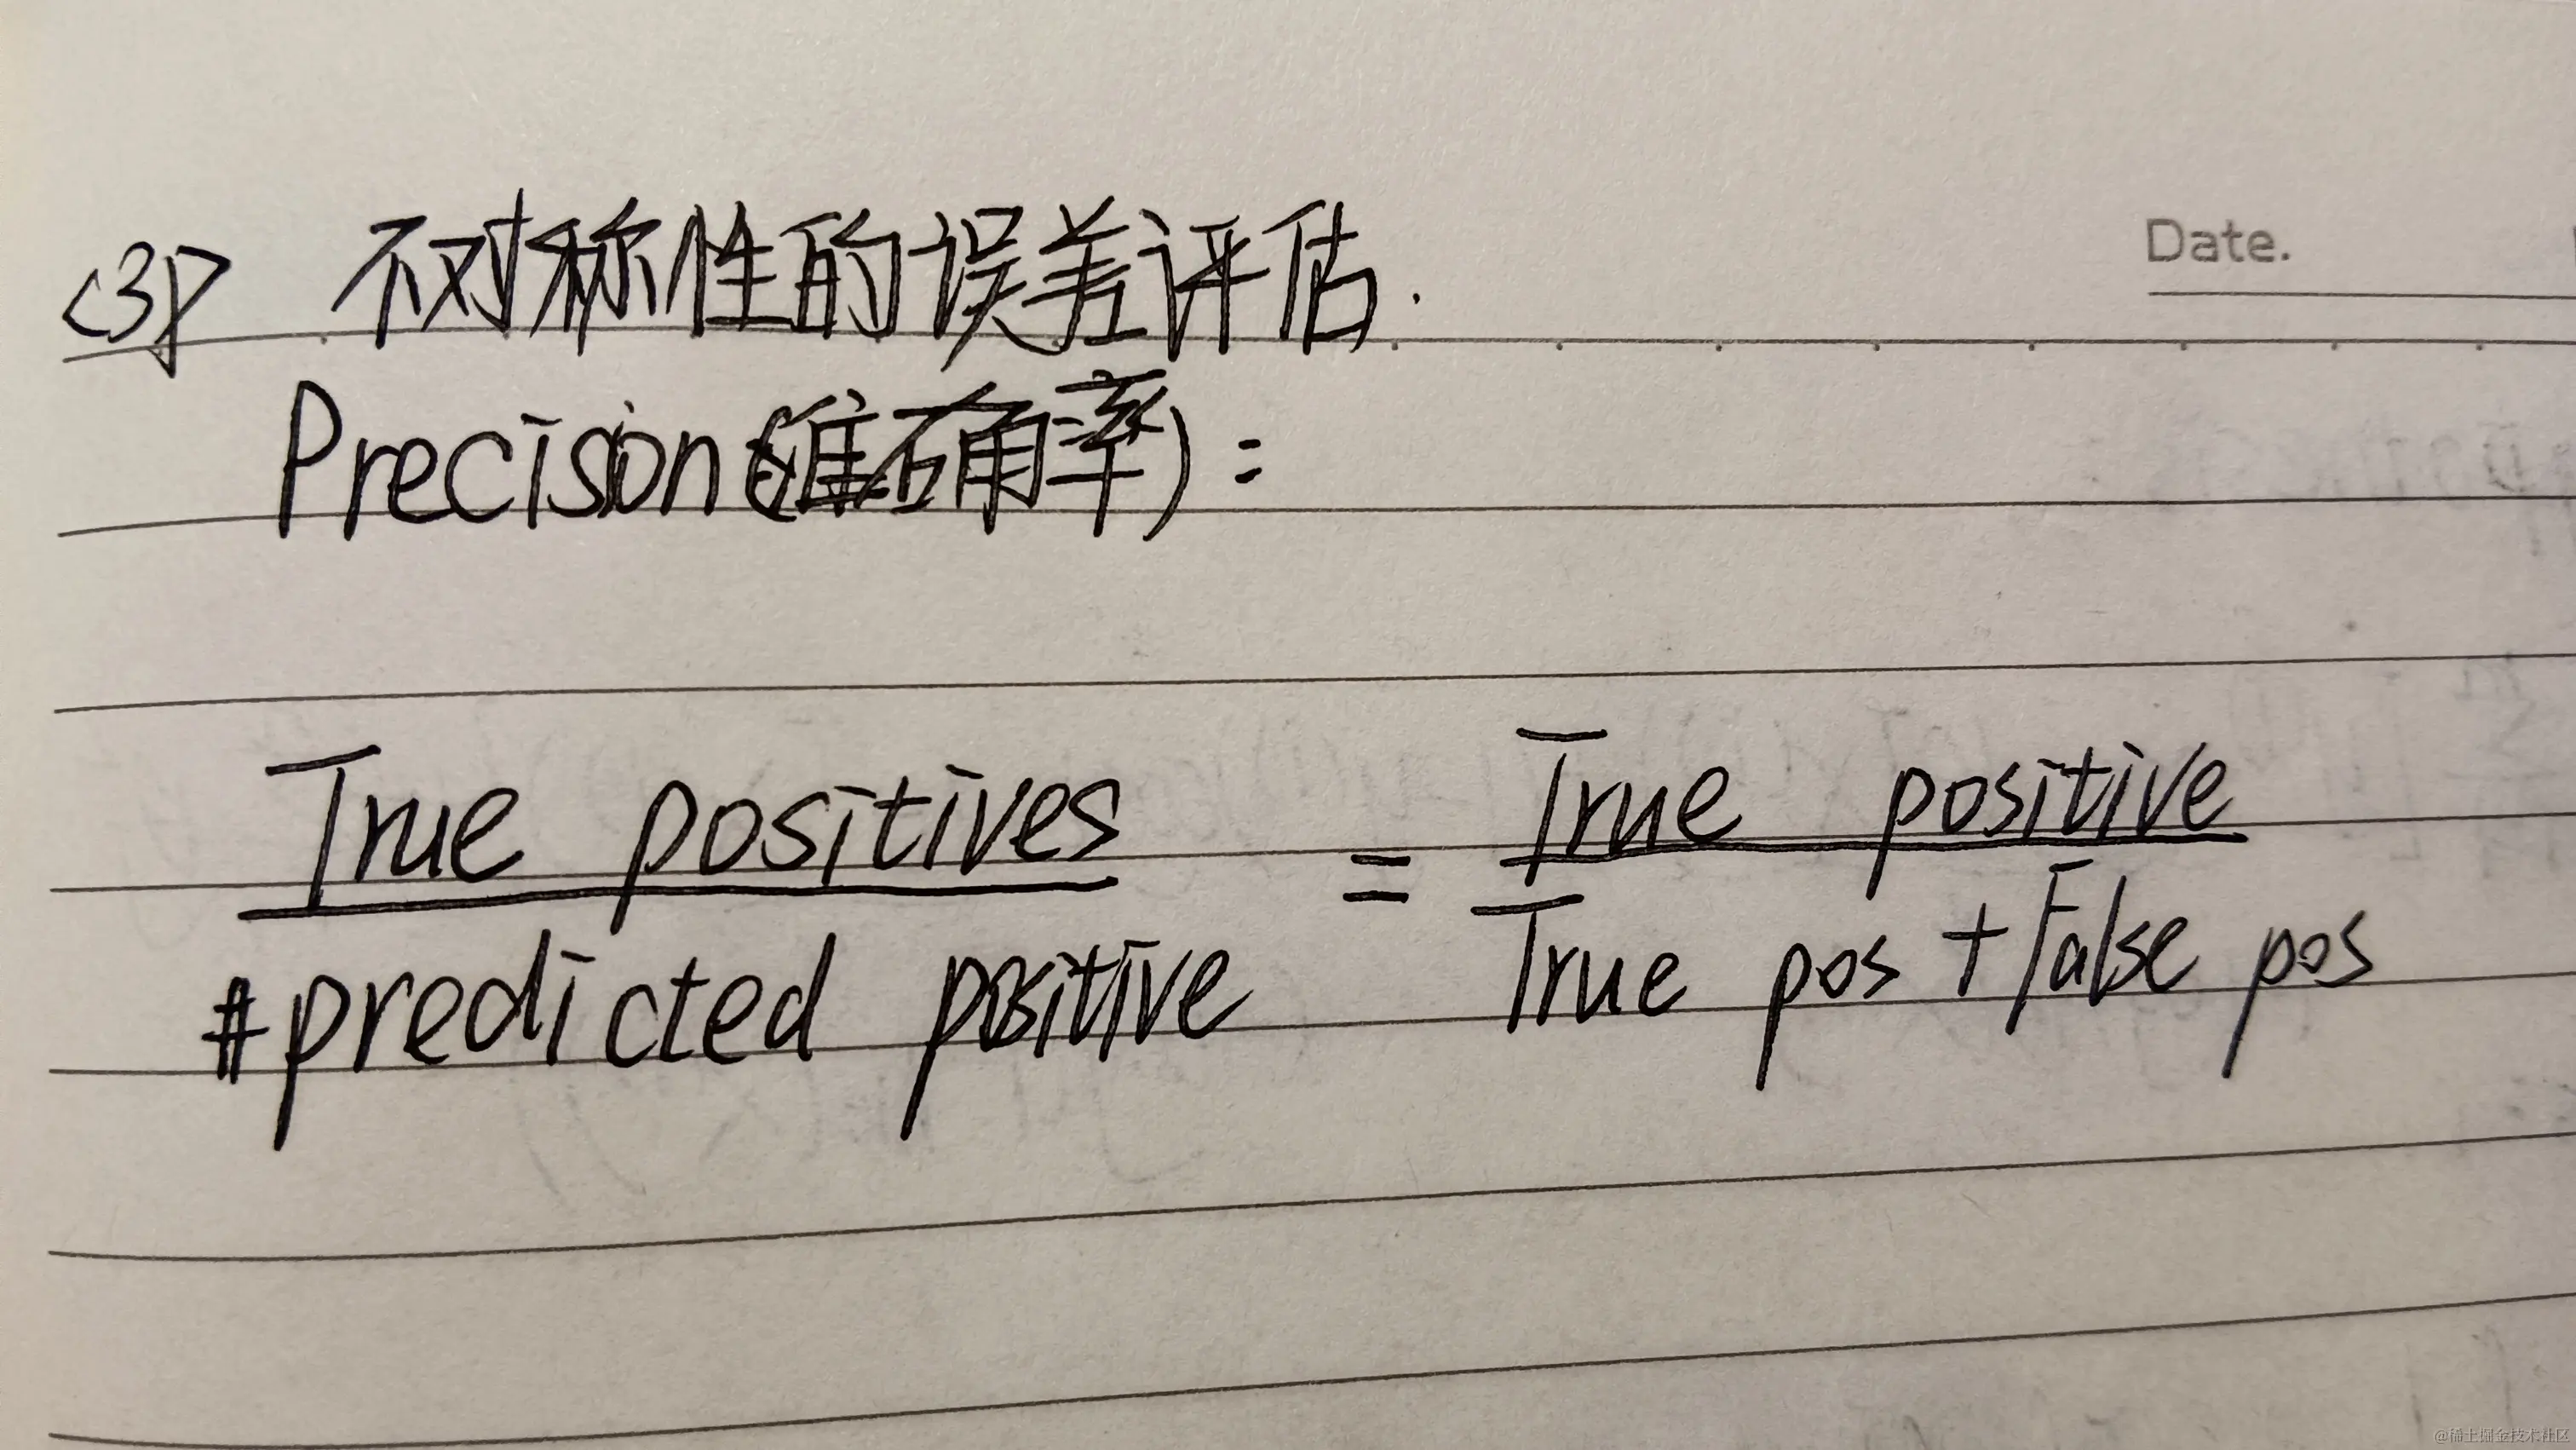 <3> 不对称性的误差评估.
Date.
Precision (准确率):
True positives = True positive
#predicted positive True pos + False pos
@稀土掘金技术社区